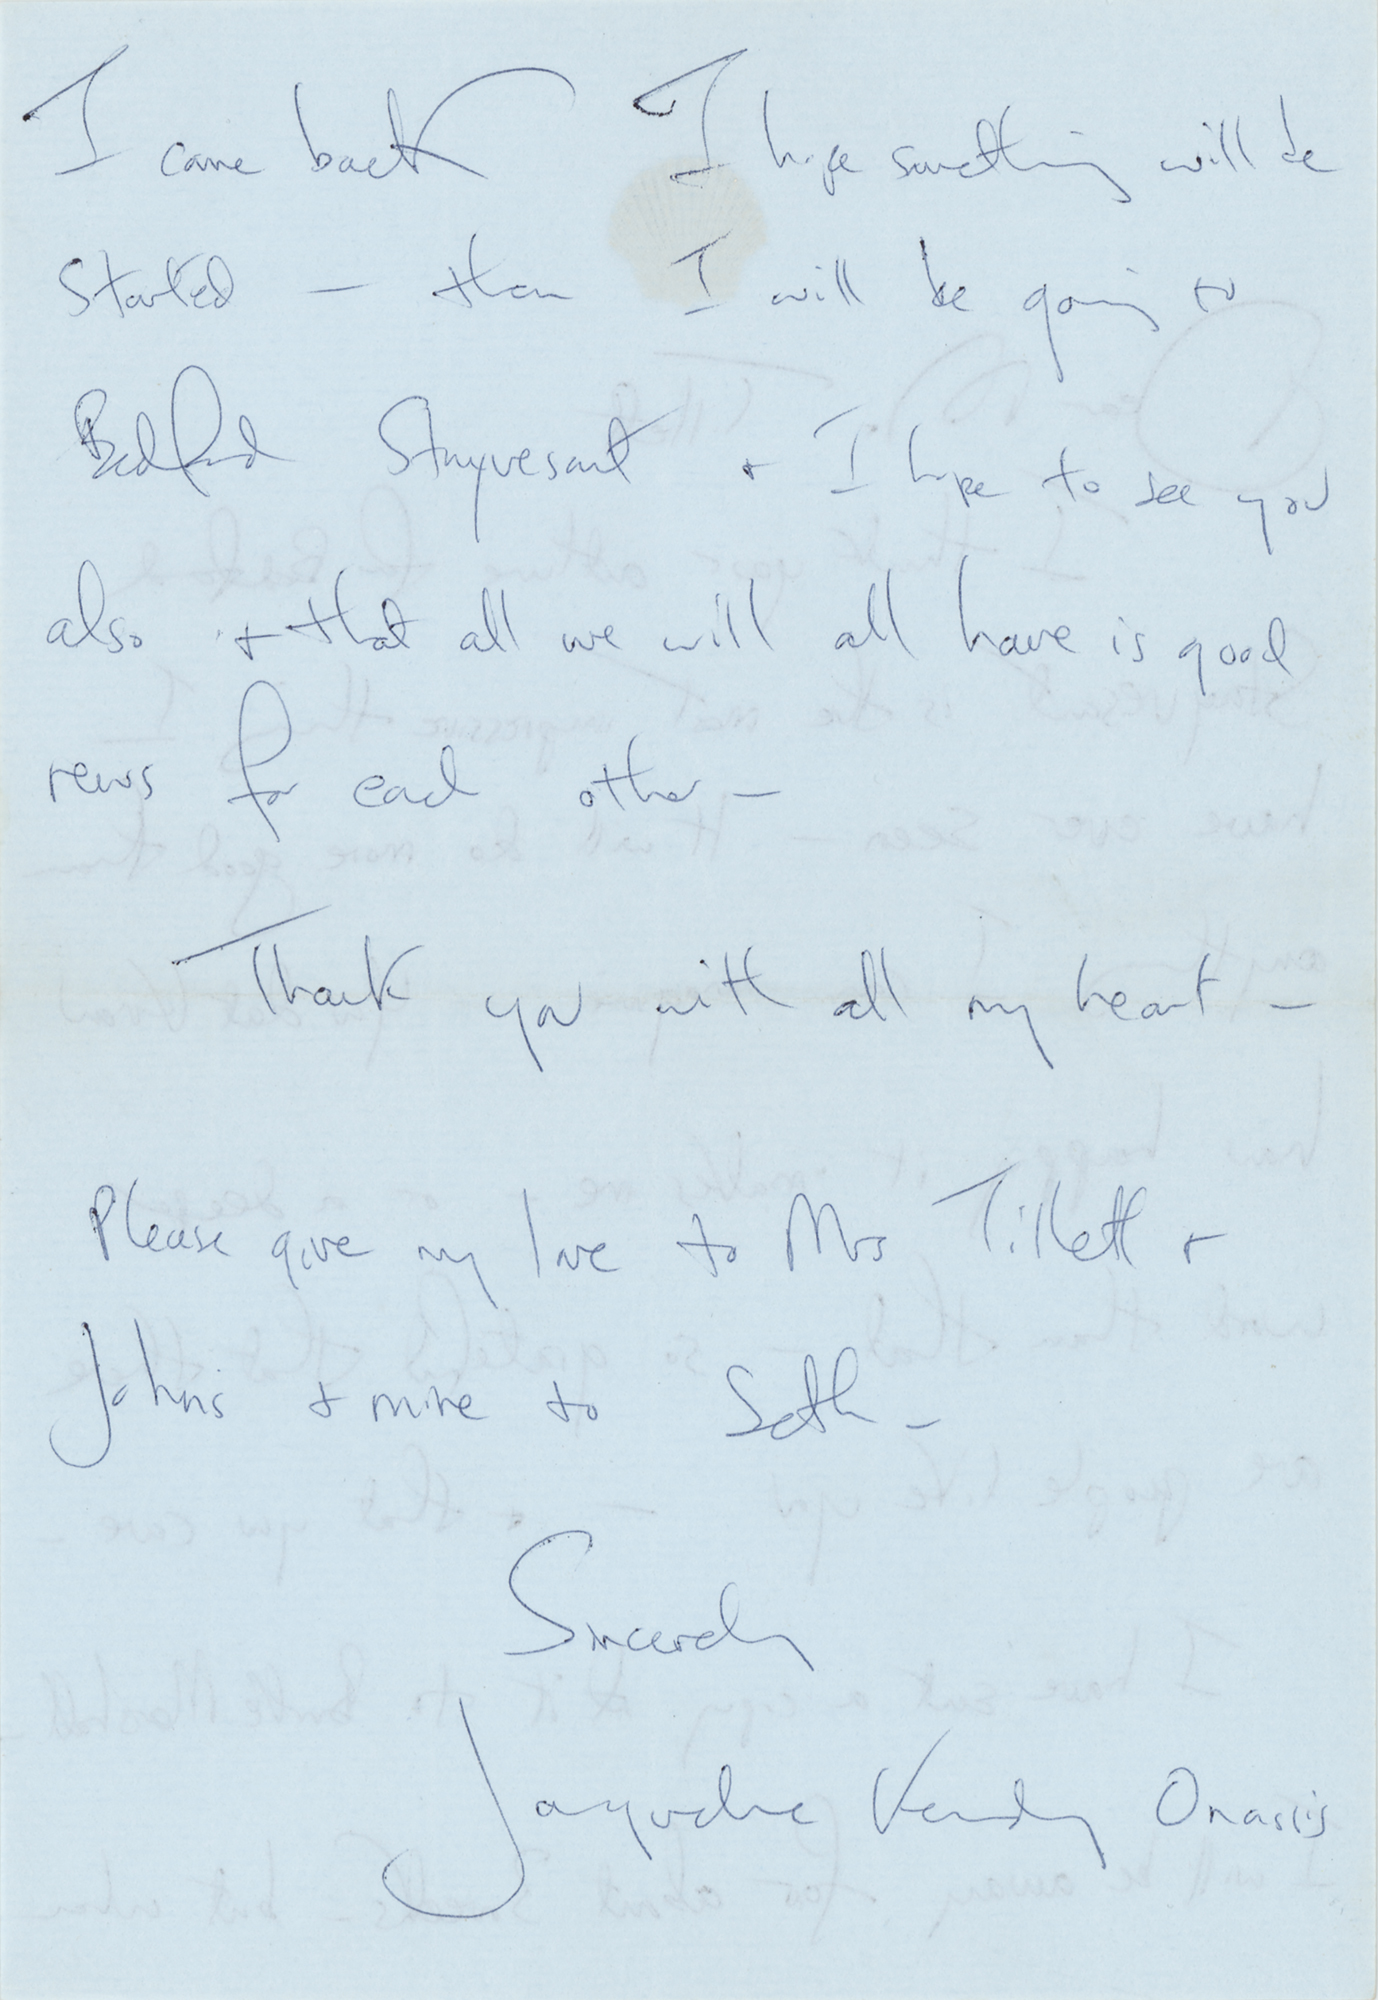 I came back I hope something will be
started — then I will be going to
Bedford Stuyvesant + I hope to see you
also + that all we will all have is good
news for each other —
Thank you with all my heart —
Please give my love to Mrs Tillett +
Johns + mine to Seth —
Sincerely
Jacqueline Kennedy Onassis